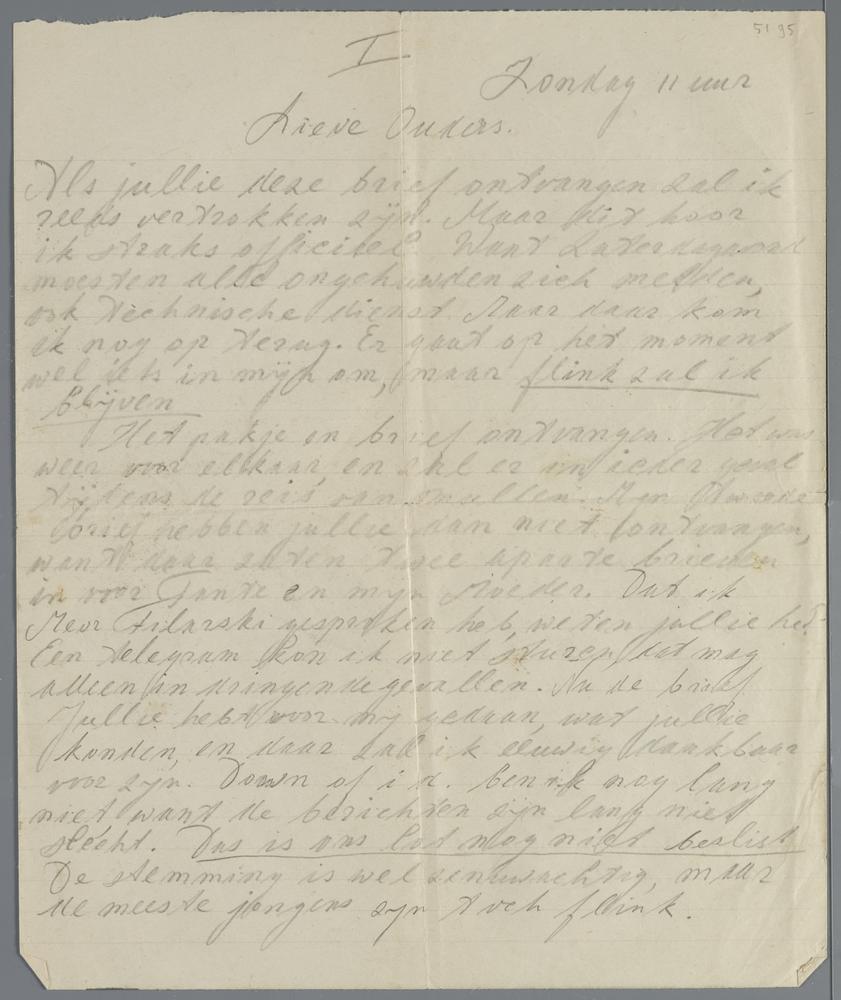 5195
I
Zondag 11 uur
Lieve Ouders.
Als jullie deze brief ontvangen zal ik
reeds vertrokken zijn. Maar dit hoor
ik straks officieel. Want Zaterdagavond
moesten alle ongehuwden zich melden,
ook technische dienst. Maar daar kom
ik nog op terug. Er gaat op het moment
wel iets in mijn om, maar flink zal ik
blijven
Het pakje en brief ontvangen. Het was
weer voor elkaar, en zal er in ieder geval
tijdens de reis van smullen. Mijn
brief hebben jullie dan niet ontvangen,
want daar zaten twee aparte brieven
in voor Tante en mijn Moeder. Dat ik
Mevr Filarski gesproken heb, weten jullie
Een telegram kon ik niet sturen, dat mag
alleen in dringende gevallen. Na de brief
Jullie hebt voor mij gedaan, wat jullie
konden, en daar zal ik eeuwig dankbaar
voor zijn. Down of i.d. ben ik nog lang
niet want de berichten zijn lang niet
slecht. Dus is ons lot nog niet beslist
De stemming is wel zenuwachtig, maar
de meeste jongens zijn toch flink.